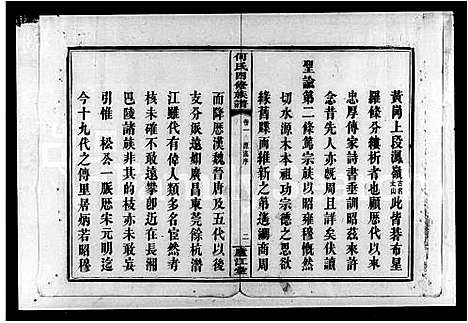 黃崗上段鳳嶺古名太山此皆碁布星
羅條分縷析者也顧歷代以來
忠厚傳家詩書垂訓昭茲來許
念昔先人亦旣周且詳矣伏讀
聖諭第二條篤宗族以昭雍穆慨然
切水源木本祖功宗德之思欲
緣舊牒而維新之第遙溯商周
何氏四修族譜 卷一 源流序 二 廬江堂
而降歷漢魏晉唐及五代以後
支分派遠如廣昌東莞餘杭潛
江雖代有偉人類多名宦然考
核未確不敢遠攀卽近在長湘
巴陵諸族非其的枝亦未敢妄
引惟 松公一脈歷宋元明迄
今十九代之傳里居炳若昭穆